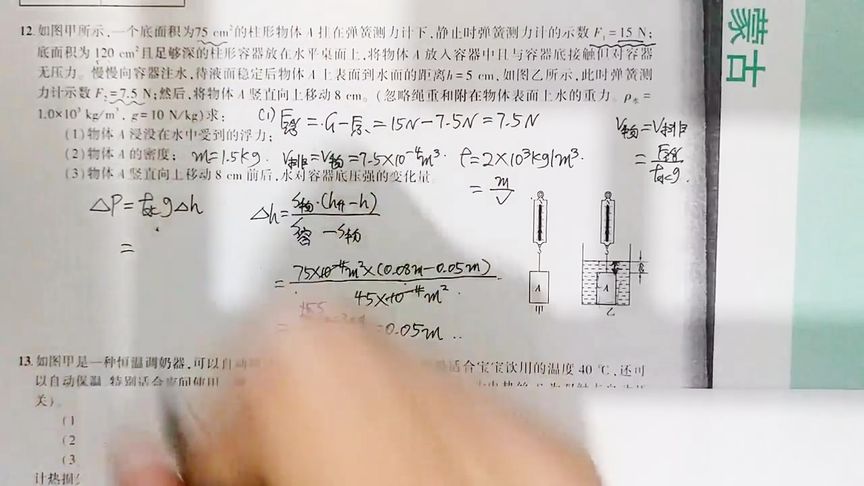 12.如图甲所示,一个底面积为75 cm²的柱形物体A挂在弹簧测力计下,静止时弹簧测力计的示数F₁=15 N;
底面积为120 cm²且足够深的柱形容器放在水平桌面上,将物体A放入容器中且与容器底接触但对容器
无压力。慢慢向容器注水,待液面稳定后物体A上表面到水面的距离h=5 cm,如图乙所示,此时弹簧测
力计示数F₂=7.5 N;然后,将物体A竖直向上移动8 cm。(忽略绳重和附在物体表面上水的重力。ρ水=
1.0×10³ kg/m³,g=10 N/kg)求:
(1) F浮=G-F示=15N-7.5N=7.5N
V物=V排
=F浮/ρ水g.
(1)物体A浸没在水中受到的浮力;
(2)物体A的密度;
m=1.5kg. V排=V物=7.5×10⁻⁴m³. ρ=2×10³kg/m³.
=m/V
(3)物体A竖直向上移动8 cm前后,水对容器底压强的变化量
ΔP=ρ水gΔh
=
Δh=S物·(h升-h)/S容-S物
=75×10⁻⁴m²×(0.08m-0.05m)/45×10⁻⁴m²
=0.05m
A
甲
A
乙
13.如图甲是一种恒温调奶器,可以自动
适合宝宝饮用的温度40 ℃,还可
以自动保温,特别适合夜间使用
关)。
(1
(2
(3
计热损
蒙古